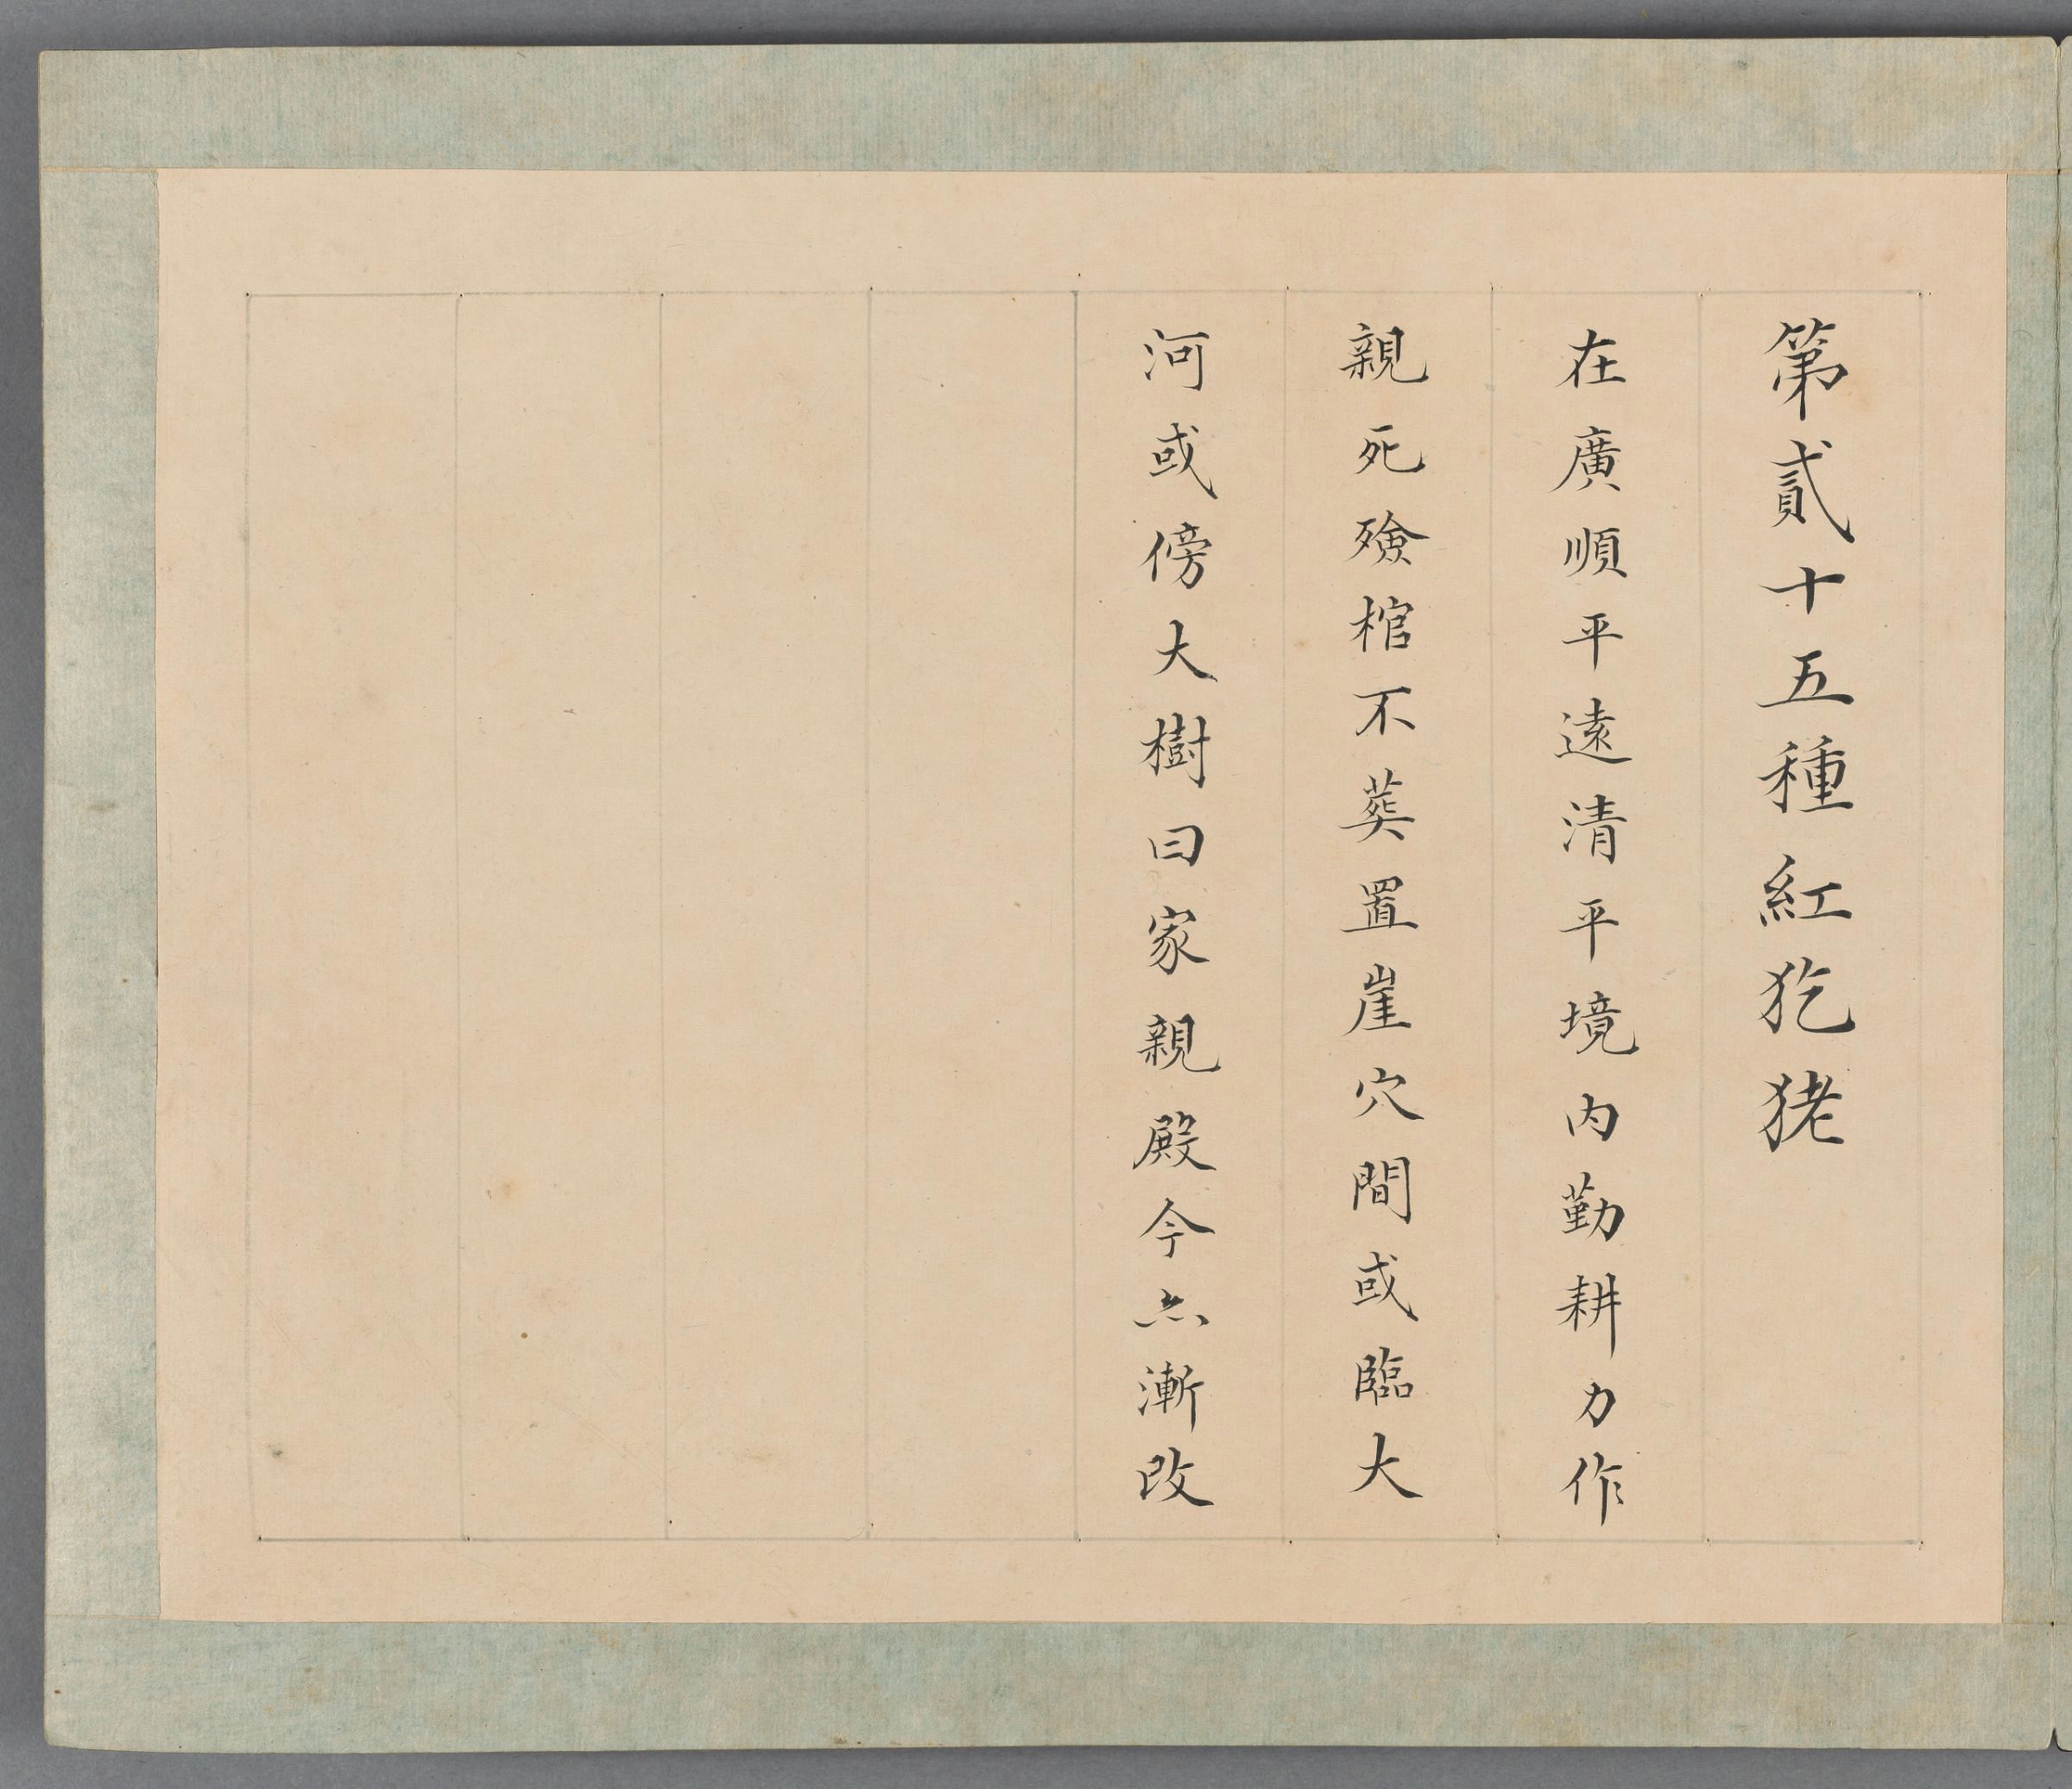 第貳十五種紅犵狫
在廣順平遠清平境内勤耕力作
親死殮棺不葬置崖穴間或臨大
河或傍大樹曰家親殿今亦漸改